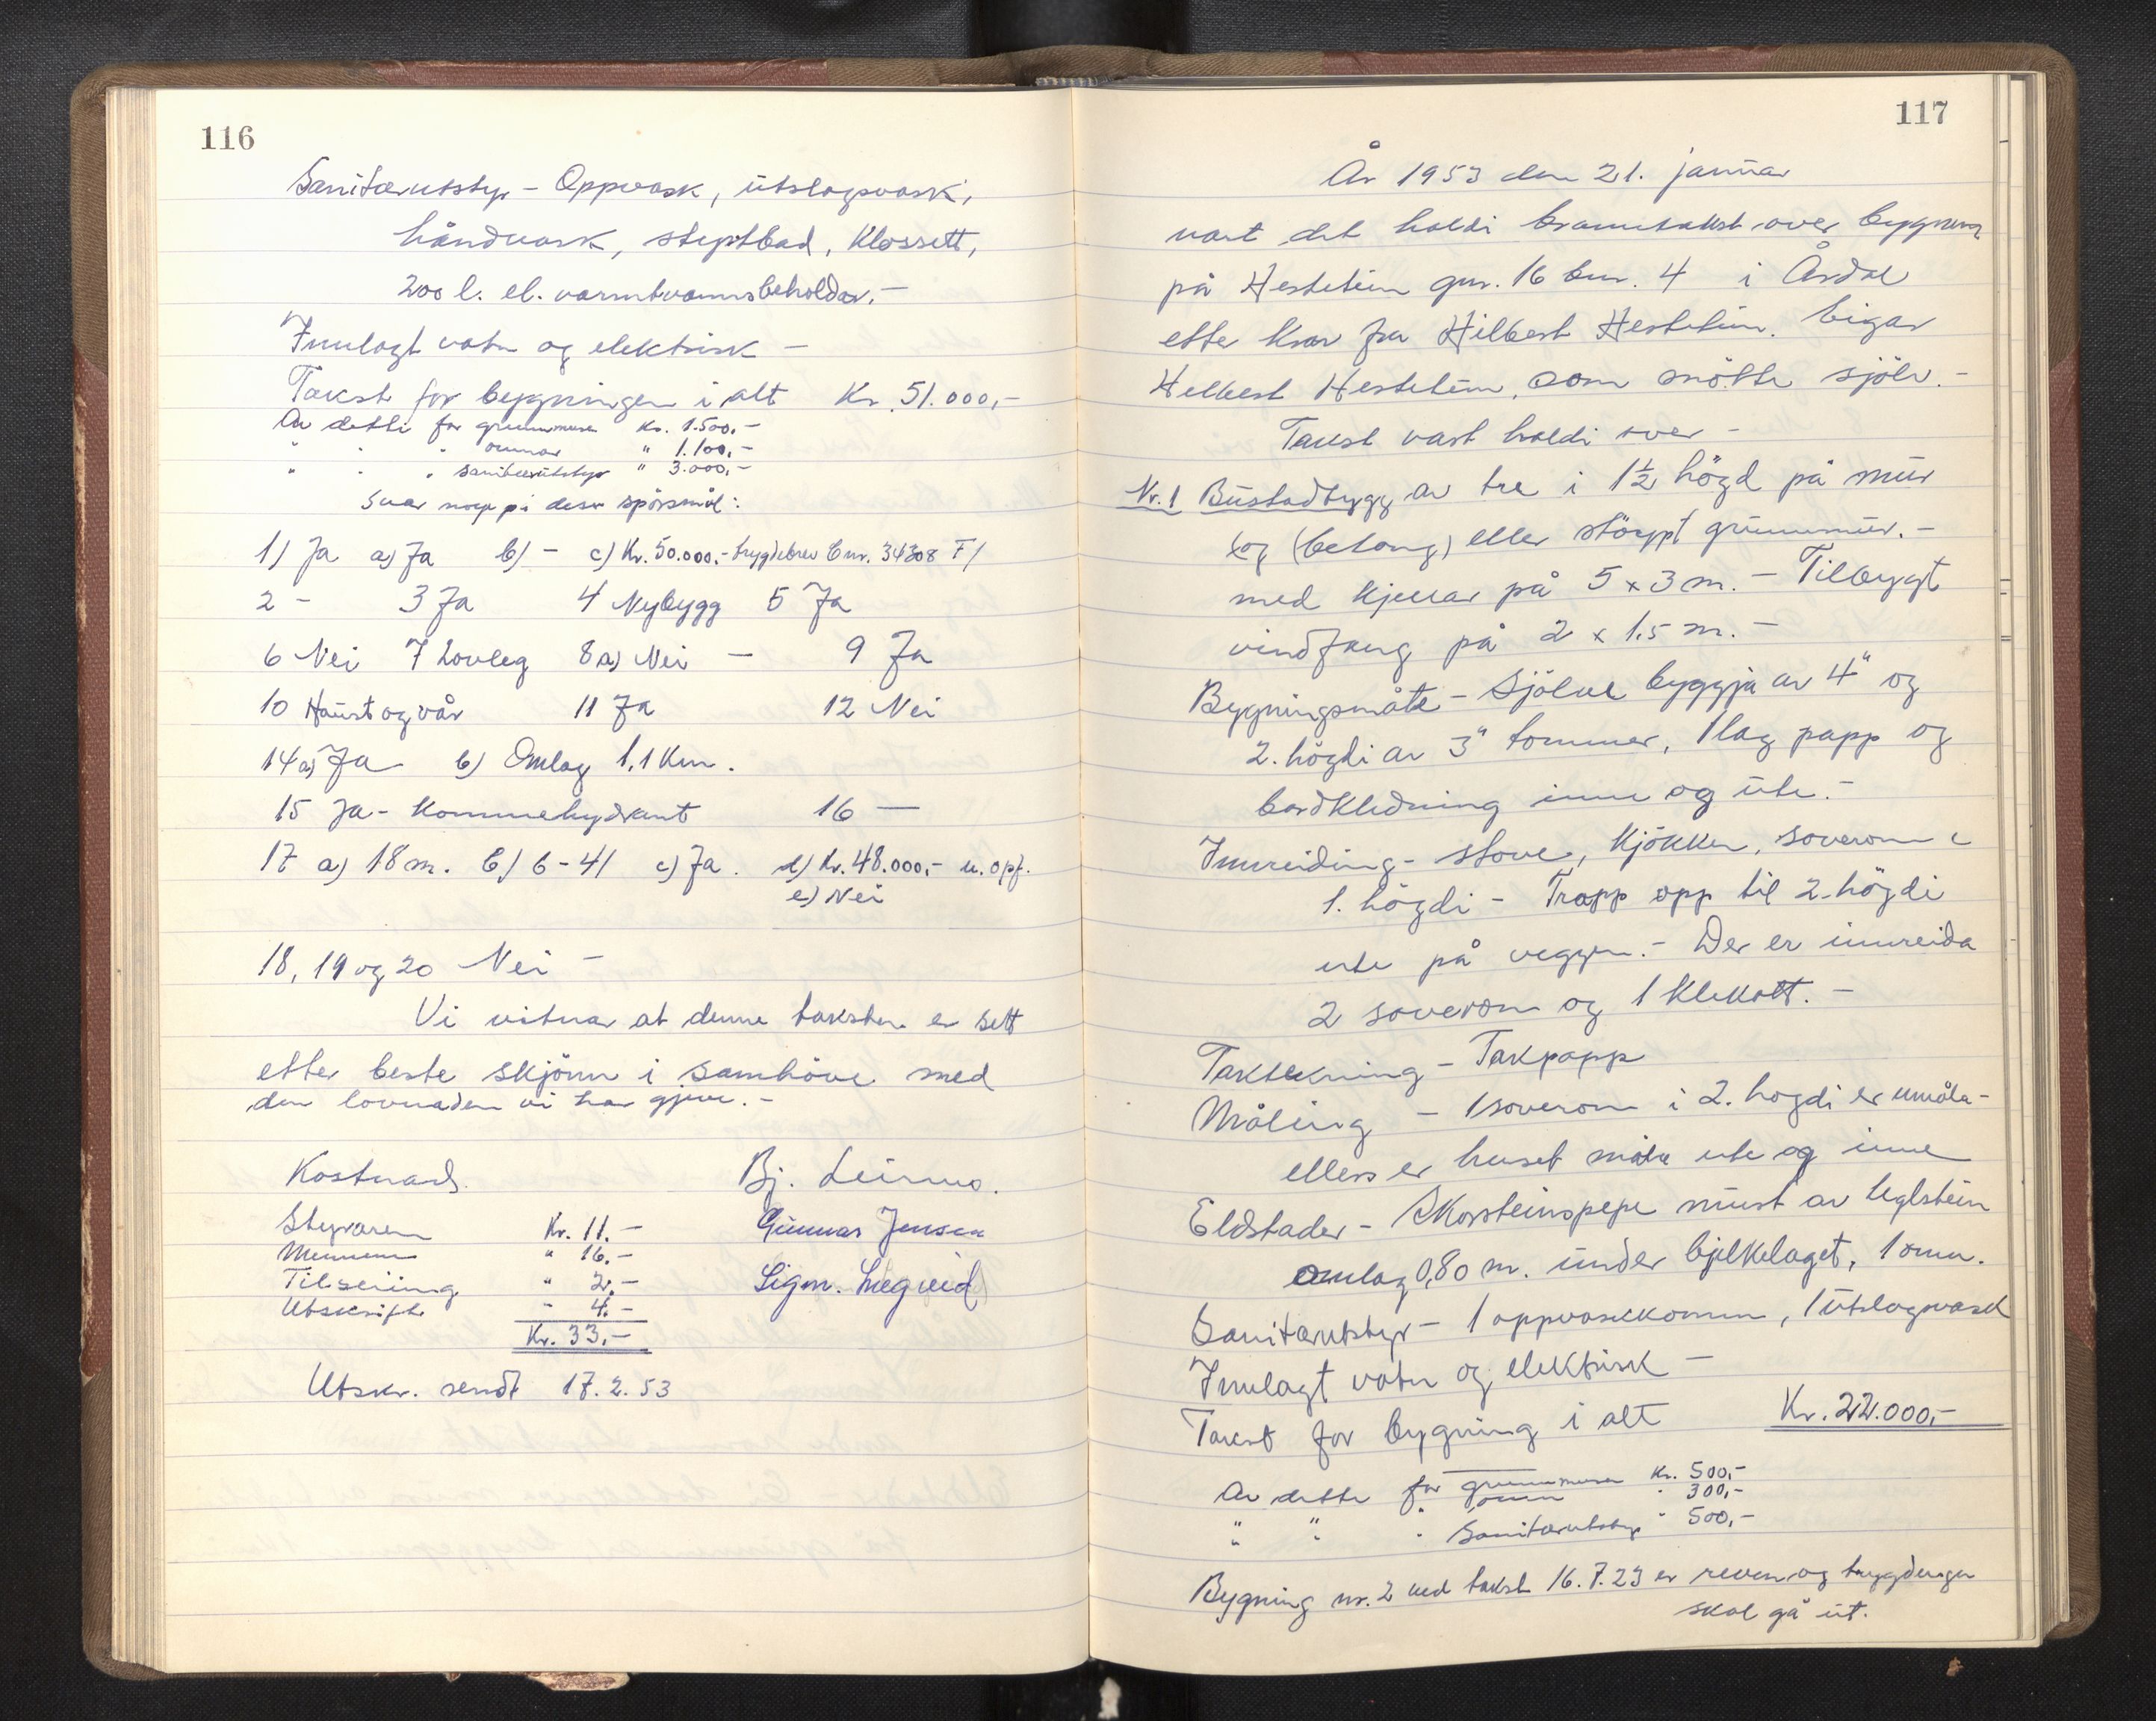 116
Sanitærutstyr - Oppvask, utslagsvask,
håndvask, støytbad, Klossett,
200 l. el. varmtvannsbeholdar. -
Innlagt vatn og elektrisk -
Takst for bygningen i alt Kr. 51.000,-
Av dette for grunnmuren Kr. 1.500,-
" " " omnar " 1.100,-
" " " sanitærutstyr " 3.000,-
Svar no på desse spörsmål:
1) Ja a) Ja b) - c) Kr. 50.000.- trygdebrev Bnr. 34308 F/
2 - 3 Ja 4 Nybygg 5 Ja
6 Nei 7 Lovleg 8 a) Nei - 9 Ja
10 Haust og vår 11 Ja 12 Nei
14 a) Ja b) Omlag 1,1 Km.
15 Ja - Kommehydrant 16 -
17 a) 18 m. b) 6-41 c) Ja. d) Kr. 48.000,- u. opf.
e) Nei
18, 19 og 20 Nei -
Vi vitnar at denne taksten er sett
etter beste skjönn i samhöve med
den lovnaden vi har gjeve. -
Kostnad. Bj. Leirmo.
Styraren Kr. 11.- Gunnar Jensen
Mennene " 16.-
Tilseiing " 2.- Sigm.
Utskrift " 4.-
Kr. 33.-
Utskr. sendt 17.2.53
117
År 1953 den 21. januar
vart det haldi branntakst over bygning
på Hestetun gnr. 16 bnr. 4 i Årdal
etter krav fra Hilbert Hestetun. Eigar
Helbert Hestetun, som mötte sjölv. -
Takst vart haldi over -
Nr. 1 Bustadbygg av tre i 1½ högd på mur
log (betong) eller stöypt grunnmur. -
med kjellar på 5 x 3 m. - Tilbygt
vindfang på 2 x 1.5 m. -
Bygningsmåte - Sjölve byggja av 4" og
2. högdi av 3" tömmer, 1 lag papp og
bordkledning inne og ute. -
Innreiding - stove, kjökken, soverom i
1. högdi - Trapp opp til 2. högdi
ute på veggen. - Der er innreida
2 soverom og 1 klekott. -
Taktekning - Takpapp
Måling - 1 soverom i 2. hogdi er umåla -
ellers er huset måla ute og inne
Eldstader - Skorsteinspipe murt av teglstein
omlag 0,80 m. under bjelkelaget, 1 omn.
Sanitærutstyr - 1 oppvaskkomm, 1 utslagsvask
Innlagt vatn og elektrisk -
Takst for bygning i alt Kr. 22.000,-
Av dette for grunnmuren Kr. 500,-
" omn " 300,-
" " " Sanitærutstyr " 500,-
Bygning nr. 2 ved takst 16.7.23 er reven og trygdingen
skal gå ut.